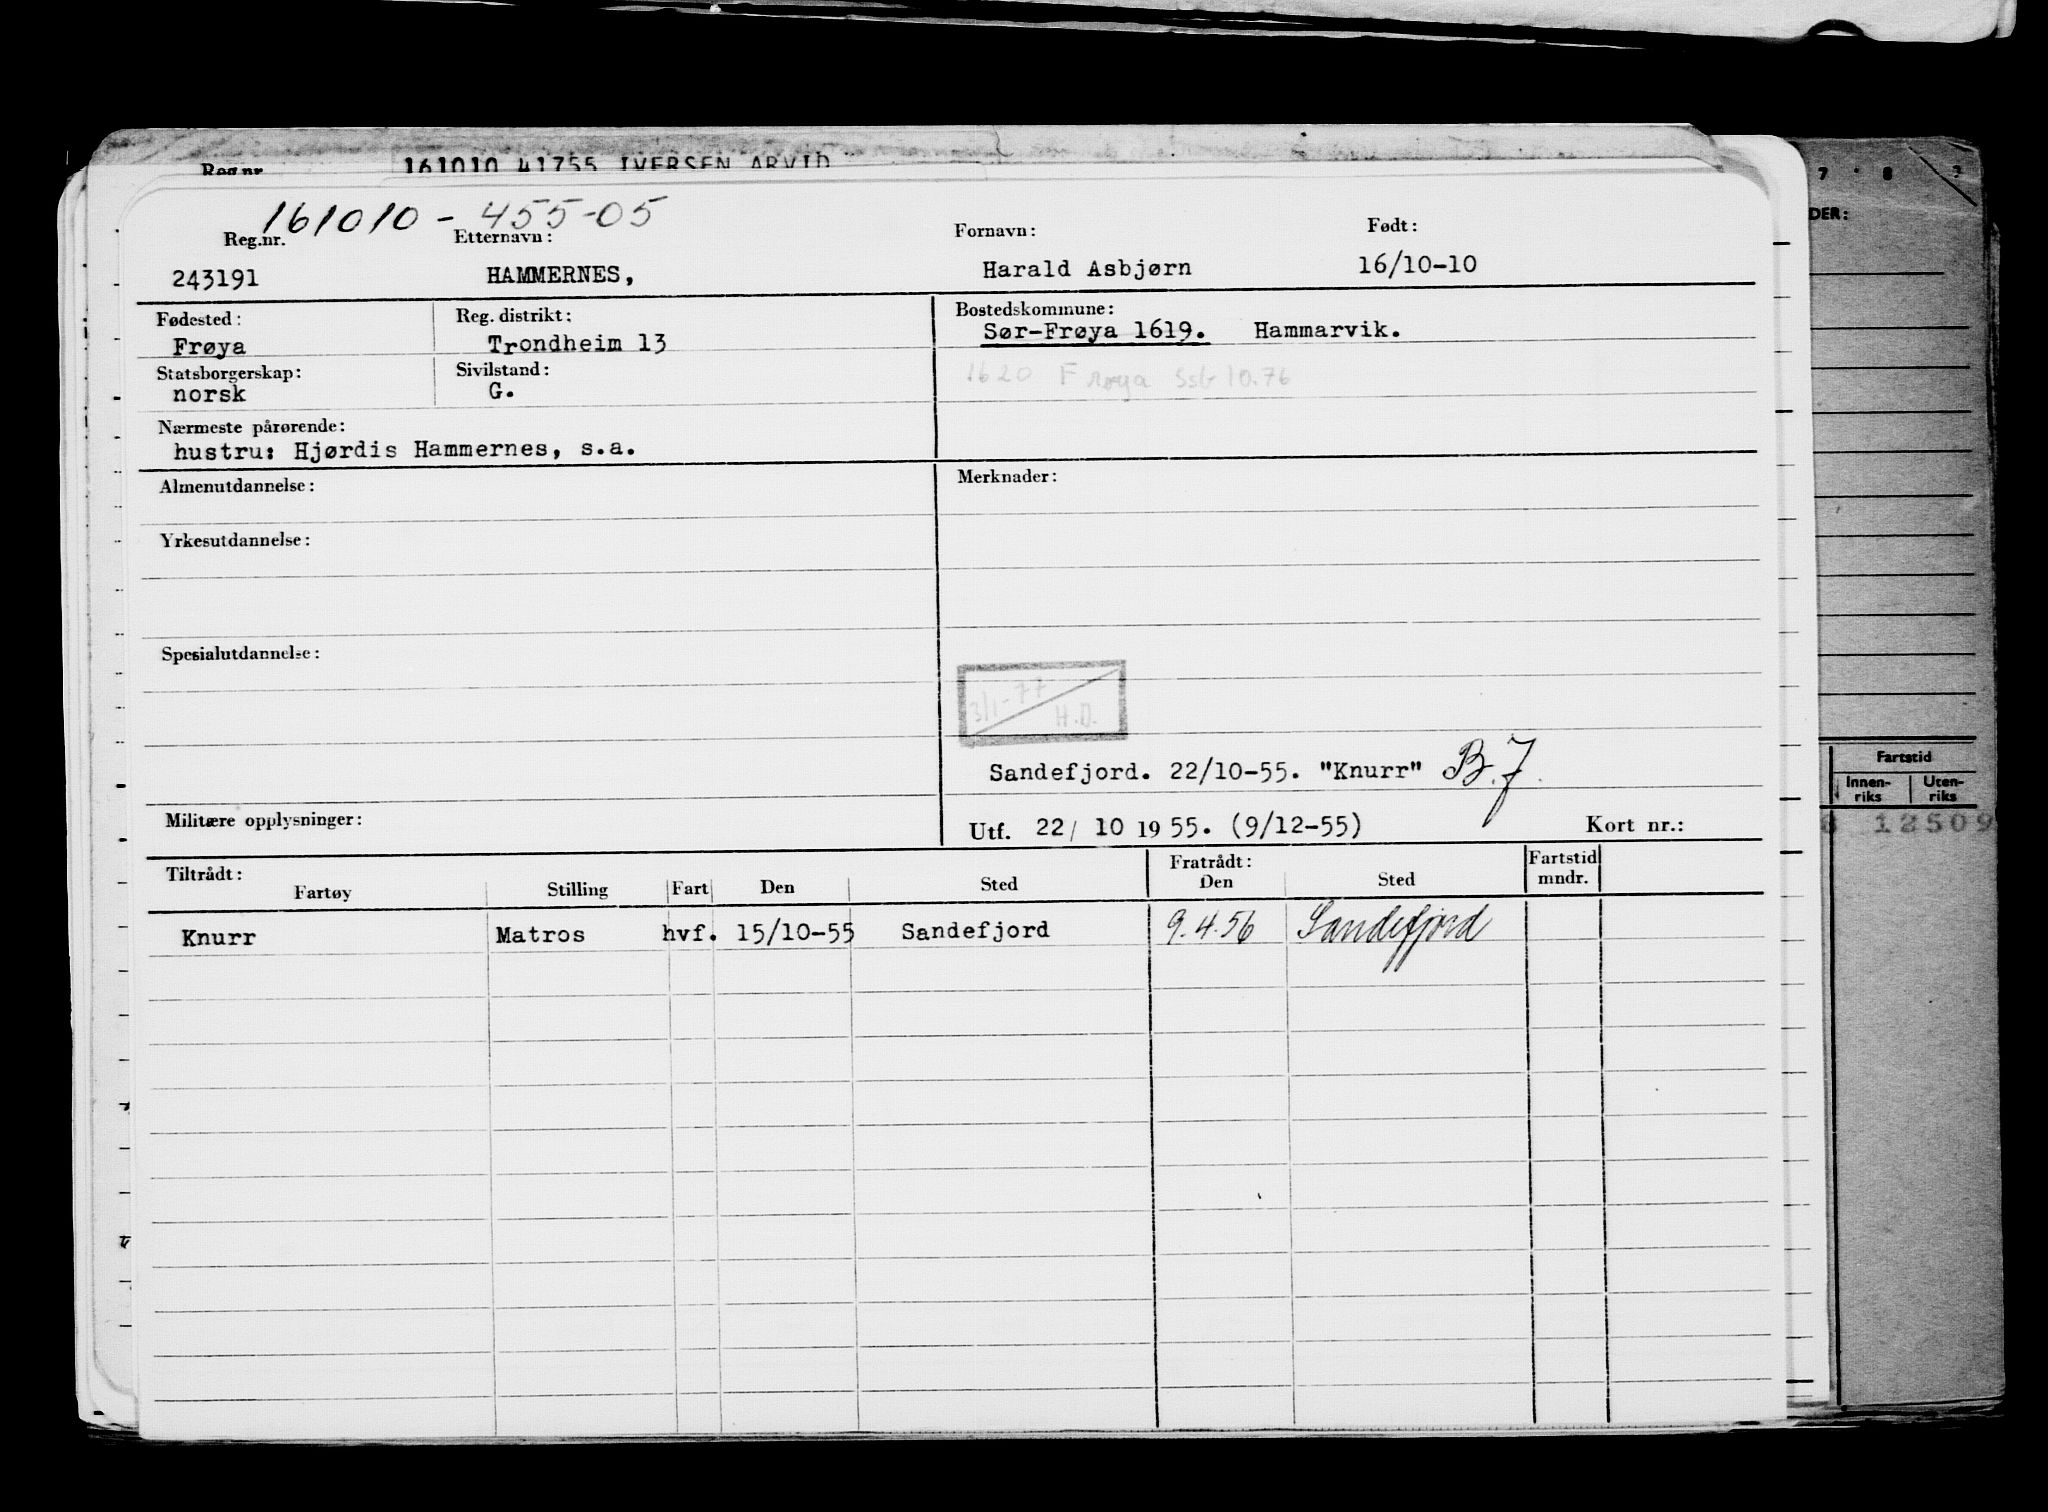 Reg.nr. 161010 41755 IVERSEN ARVID
7 8 9
DER:
161010 - 455-05
Reg.nr. Etternavn: Fornavn: Født:
243191 HAMMERNES, Harald Asbjørn 16/10-10
Fødested: Reg. distrikt: Bostedskommune:
Frøya Trondheim 13 Sør-Frøya 1619. Hammarvik.
Statsborgerskap: Sivilstand:
norsk G. 1620 Frøya SsB 10.76
Nærmeste pårørende:
hustru: Hjørdis Hammernes, s.a.
Almenutdannelse: Merknader:
Yrkesutdannelse:
Spesialutdannelse:
3/1-77
H.D.
Sandefjord. 22/10-55. "Knurr" B.J.
Militære opplysninger: Utf. 22/ 10 1955. (9/12-55) Kort nr.:
Fartstid
Innen-riks Uten-riks
12509
Tiltrådt: Fratrådt: Fartstid
Fartøy Stilling Fart Den Sted Den Sted mndr.
Knurr Matros hvf. 15/10-55 Sandefjord 9.4.56 Sandefjord